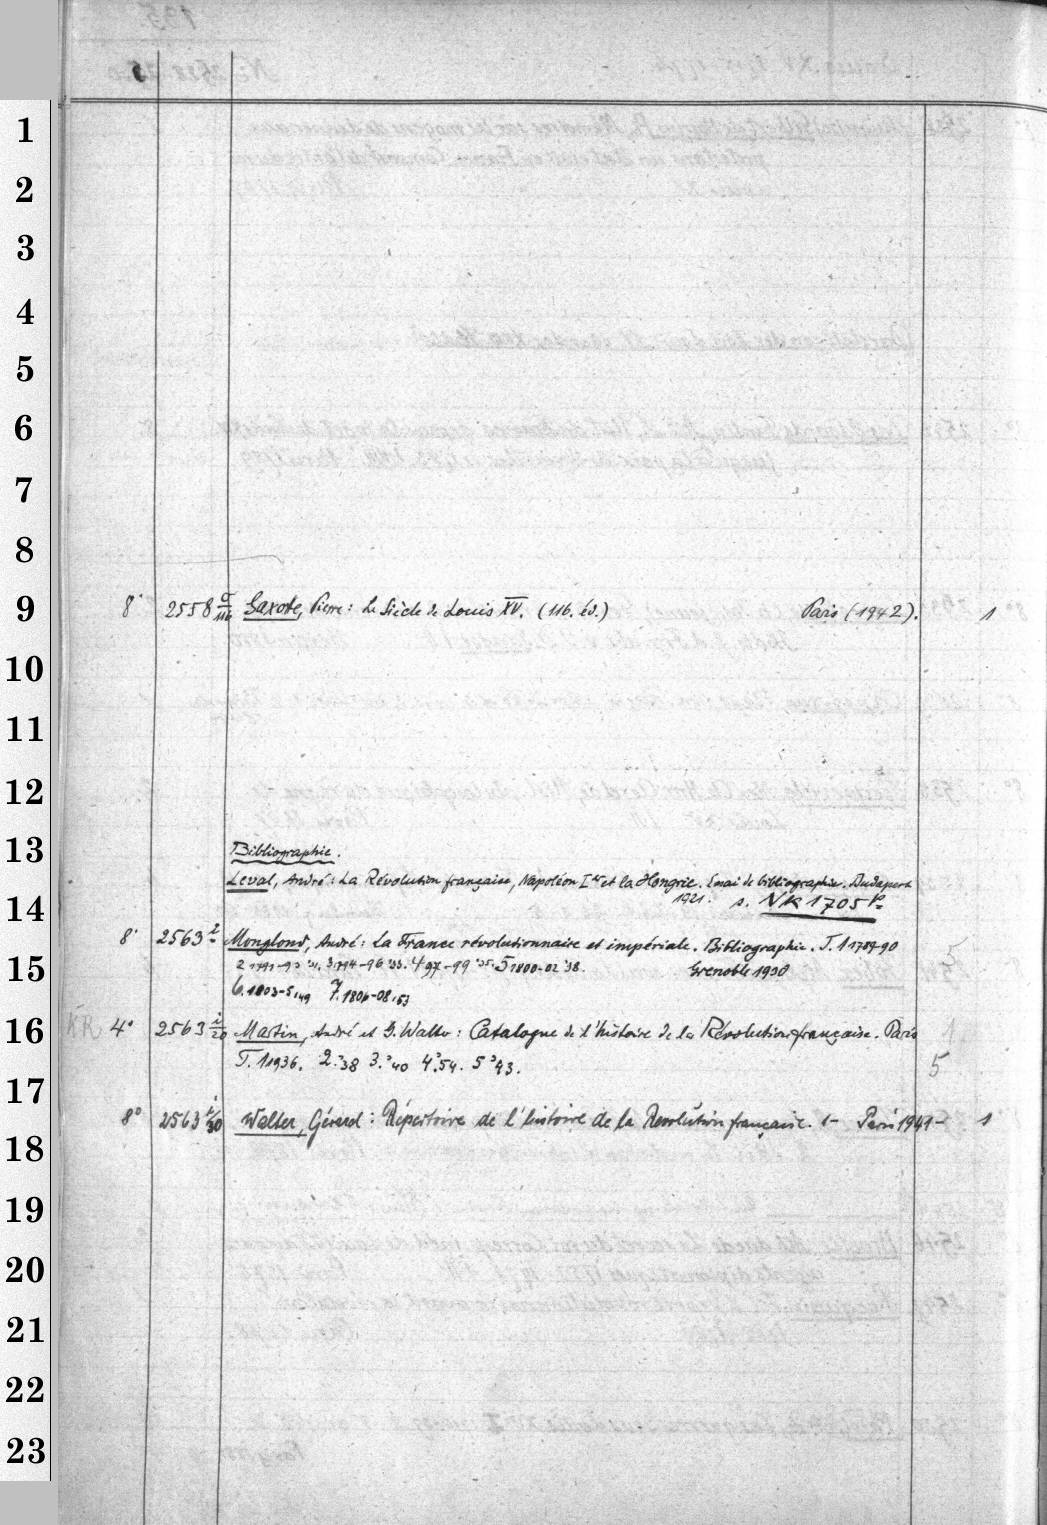 8° 2558 σ/116 Gaxote, Pierre: Le Siècle de Louis XV. (116. éd.) Paris (1942). 1
Bibliographie.
Leval, André: La Révolution française, Napoléon Ier et la Hongrie. Essai de bibliographie. Budapest
1921. s. NK 1705
8° 2563 Monglond, André: La France révolutionnaire et impériale. Bibliographie. T. 1 1789-90
2 1791-93 '31. 3 1794-96 '33. 4 97-99 '35. 5 1800-02 '38. Grenoble 1930
6. 1803-5, 49 7. 1806-08, 53
KR 4° 2563 i/20 Martin, André et G. Walter: Catalogue de l'histoire de la Révolution française. Paris 1
T. 1 1936. 2. '38 3. '40 4. 54. 5 '43. 5
8° 2563 i/30 Walter, Gérard: Répertoire de l'histoire de la Revolution française. 1- Paris 1941- 1